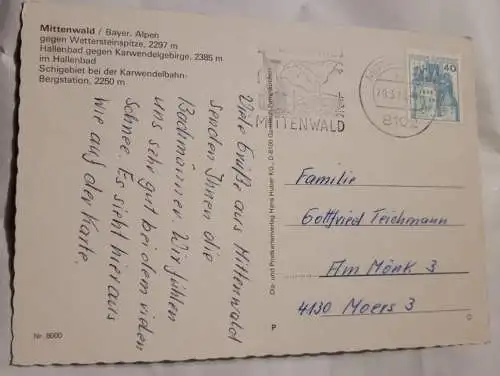 Mittenwald / Bayer. Alpen
gegen Wettersteinspitze, 2297 m
Hallenbad gegen Karwendelgebirge, 2385 m
im Hallenbad
Schigebiet bei der Karwendelbahn-
Bergstation, 2250 m
Viele Grüße aus Mittenwald
senden Ihnen die
Bachmänner. Wir fühlen
uns sehr gut bei dem vielen
Schnee. Es sieht hier aus
wie auf der Karte.
Nr. 8000
Dia- und Postkartenverlag Hans Huber KG., D-8100 Garmisch-Partenkirchen
P
MITTENWALD
8102
40
Familie
Gottfried Teichmann
Am Mönk 3
4130 Moers 3